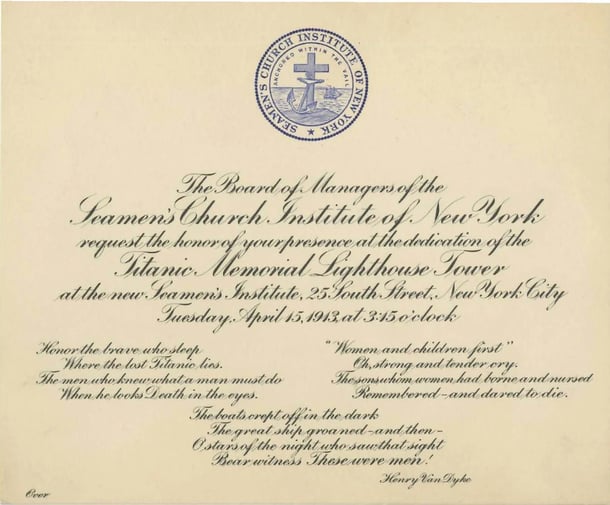 SEAMEN'S CHURCH INSTITUTE OF NEW YORK
ANCHORED WITHIN THE VAIL
The Board of Managers of the
Seamen's Church Institute of New York
request the honor of your presence at the dedication of the
Titanic Memorial Lighthouse Tower
at the new Seamen's Institute, 25 South Street, New York City
Tuesday, April 15, 1913, at 3:15 o'clock
Honor the brave who sleep
Where the lost Titanic lies.
The men who knew what a man must do
When he looks Death in the eyes.
"Women and children first"
Oh, strong and tender cry.
The sons whom women had borne and nursed
Remembered - and dared to die.
The boats crept off in the dark
The great ship groaned - and then -
O stars of the night who saw that sight
Bear witness These were men!
Henry Van Dyke
Over